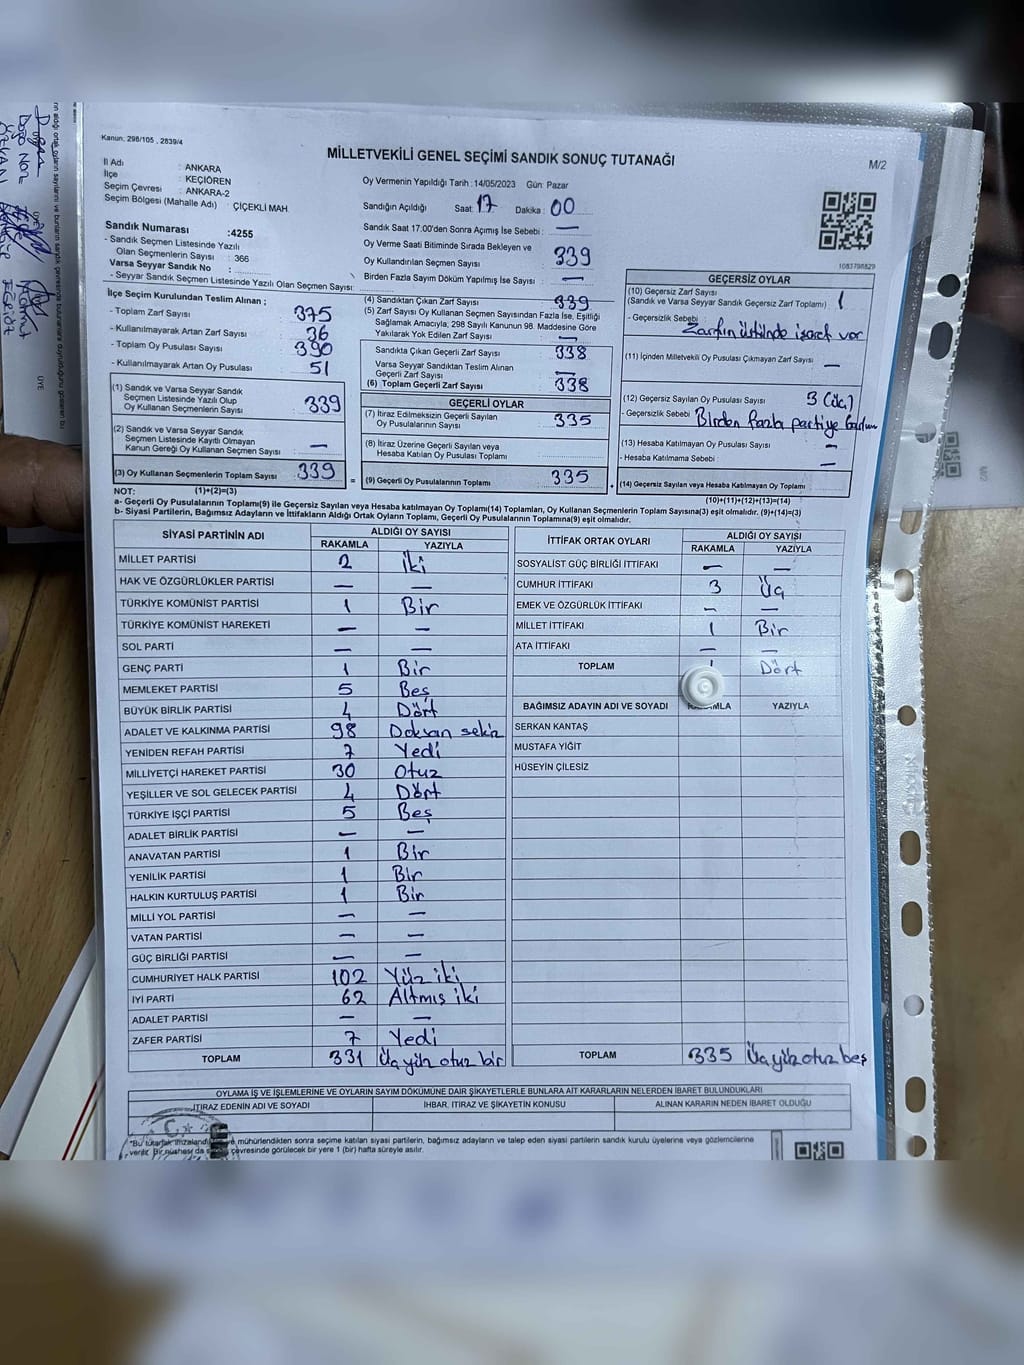 Kanun: 298/105 , 2839/4
MİLLETVEKİLİ GENEL SEÇİMİ SANDIK SONUÇ TUTANAĞI
M/2
İl Adı : ANKARA
İlçe : KEÇİÖREN
Seçim Çevresi : ANKARA-2
Seçim Bölgesi (Mahalle Adı) : ÇİÇEKLİ MAH.
Oy Vermenin Yapıldığı Tarih : 14/05/2023 Gün: Pazar
Sandığın Açıldığı Saat: 17 Dakika : 00
Sandık Saat 17.00'den Sonra Açımış İse Sebebi : —
Oy Verme Saati Bitiminde Sırada Bekleyen ve
Oy Kullandırılan Seçmen Sayısı : 339
Birden Fazla Sayım Döküm Yapılmış İse Sayısı : —
Sandık Numarası : 4255
- Sandık Seçmen Listesinde Yazılı
Olan Seçmenlerin Sayısı : 366
Varsa Seyyar Sandık No :
- Seyyar Sandık Seçmen Listesinde Yazılı Olan Seçmen Sayısı:
1083798829
İlçe Seçim Kurulundan Teslim Alınan ;
- Toplam Zarf Sayısı : 375
- Kullanılmayarak Artan Zarf Sayısı : 36
- Toplam Oy Pusulası Sayısı : 390
- Kullanılmayarak Artan Oy Pusulası : 51
(1) Sandık ve Varsa Seyyar Sandık
Seçmen Listesinde Yazılı Olup
Oy Kullanan Seçmenlerin Sayısı : 339
(2) Sandık ve Varsa Seyyar Sandık
Seçmen Listesinde Kayıtlı Olmayan
Kanun Gereği Oy Kullanan Seçmen Sayısı : —
(3) Oy Kullanan Seçmenlerin Toplam Sayısı : 339
(1)+(2)=(3)
(4) Sandıktan Çıkan Zarf Sayısı : 339
(5) Zarf Sayısı Oy Kullanan Seçmen Sayısından Fazla İse, Eşitliği
Sağlamak Amacıyla, 298 Sayılı Kanunun 98. Maddesine Göre
Yakılarak Yok Edilen Zarf Sayısı : —
Sandıkta Çıkan Geçerli Zarf Sayısı : 338
Varsa Seyyar Sandıktan Teslim Alınan
Geçerli Zarf Sayısı : —
(6) Toplam Geçerli Zarf Sayısı : 338
GEÇERLİ OYLAR
(7) İtiraz Edilmeksizin Geçerli Sayılan
Oy Pusulalarının Sayısı : 335
(8) İtiraz Üzerine Geçerli Sayılan veya
Hesaba Katılan Oy Pusulası Toplamı :
= (9) Geçerli Oy Pusulalarının Toplamı : 335
GEÇERSİZ OYLAR
(10) Geçersiz Zarf Sayısı
(Sandık ve Varsa Seyyar Sandık Geçersiz Zarf Toplamı) : 1
- Geçersizlik Sebebi :
Zarfın üstünde işaret var
(11) İçinden Milletvekili Oy Pusulası Çıkmayan Zarf Sayısı : —
(12) Geçersiz Sayılan Oy Pusulası Sayısı : 3 (üç)
- Geçersizlik Sebebi : Birden fazla partiye
(13) Hesaba Katılmayan Oy Pusulası Sayısı : —
- Hesaba Katılmama Sebebi : —
+ (14) Geçersiz Sayılan veya Hesaba Katılmayan Oy Toplamı
(10)+(11)+(12)+(13)=(14)
NOT:
a- Geçerli Oy Pusulalarının Toplamı(9) ile Geçersiz Sayılan veya Hesaba katılmayan Oy Toplamı(14) Toplamları, Oy Kullanan Seçmenlerin Toplam Sayısına(3) eşit olmalıdır. (9)+(14)=(3)
b- Siyasi Partilerin, Bağımsız Adayların ve İttifakların Aldığı Ortak Oyların Toplamı, Geçerli Oy Pusulalarının Toplamına(9) eşit olmalıdır.
SİYASİ PARTİNİN ADI ALDIĞI OY SAYISI
RAKAMLA YAZIYLA
MİLLET PARTİSİ 2 İki
HAK VE ÖZGÜRLÜKLER PARTİSİ — —
TÜRKİYE KOMÜNİST PARTİSİ 1 Bir
TÜRKİYE KOMÜNİST HAREKETİ — —
SOL PARTİ — —
GENÇ PARTİ 1 Bir
MEMLEKET PARTİSİ 5 Beş
BÜYÜK BİRLİK PARTİSİ 4 Dört
ADALET VE KALKINMA PARTİSİ 98 Doksan sekiz
YENİDEN REFAH PARTİSİ 7 Yedi
MİLLİYETÇİ HAREKET PARTİSİ 30 Otuz
YEŞİLLER VE SOL GELECEK PARTİSİ 4 Dört
TÜRKİYE İŞÇİ PARTİSİ 5 Beş
ADALET BİRLİK PARTİSİ — —
ANAVATAN PARTİSİ 1 Bir
YENİLİK PARTİSİ 1 Bir
HALKIN KURTULUŞ PARTİSİ 1 Bir
MİLLİ YOL PARTİSİ — —
VATAN PARTİSİ — —
GÜÇ BİRLİĞİ PARTİSİ — —
CUMHURİYET HALK PARTİSİ 102 Yüz iki
İYİ PARTİ 62 Altmış iki
ADALET PARTİSİ — —
ZAFER PARTİSİ 7 Yedi
TOPLAM 331 Üç yüz otuz bir
İTTİFAK ORTAK OYLARI ALDIĞI OY SAYISI
RAKAMLA YAZIYLA
SOSYALİST GÜÇ BİRLİĞİ İTTİFAKI — —
CUMHUR İTTİFAKI 3 Üç
EMEK VE ÖZGÜRLÜK İTTİFAKI — —
MİLLET İTTİFAKI 1 Bir
ATA İTTİFAKI — —
TOPLAM Dört
BAĞIMSIZ ADAYIN ADI VE SOYADI RAKAMLA YAZIYLA
SERKAN KANTAŞ
MUSTAFA YİĞİT
HÜSEYİN ÇİLESİZ
TOPLAM 335 Üç yüz otuz beş
OYLAMA İŞ VE İŞLEMLERİNE VE OYLARIN SAYIM DÖKÜMÜNE DAİR ŞİKAYETLERLE BUNLARA AİT KARARLARIN NELERDEN İBARET BULUNDUKLARI
İTİRAZ EDENİN ADI VE SOYADI İHBAR, İTİRAZ VE ŞİKAYETİN KONUSU ALINAN KARARIN NEDEN İBARET OLDUĞU
*Bu tutanak imzalandı ve mühürlendikten sonra seçime katılan siyasi partilerin, bağımsız adayların ve talep eden siyasi partilerin sandık kurulu üyelerine veya gözlemcilerine
verilir. Bir nüshası da çevresinde görülecek bir yere 1 (bir) hafta süreyle asılır.